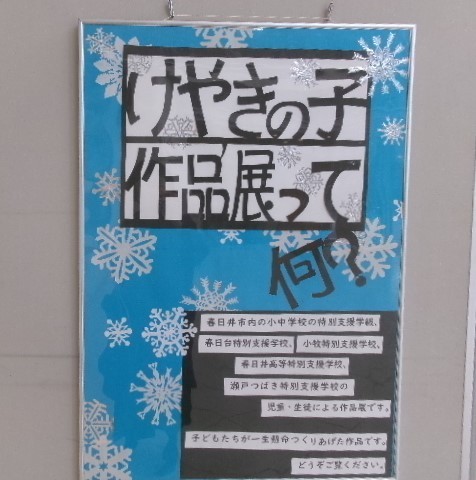 けやきの子
作品展って
何?
春日井市内の小中学校の特別支援学級、
春日台特別支援学校、 小牧特別支援学校、
春日井高等特別支援学校、
瀬戸つばき特別支援学校の
児童・生徒による作品展です。
子どもたちが一生懸命つくりあげた作品です。
どうぞご覧ください。